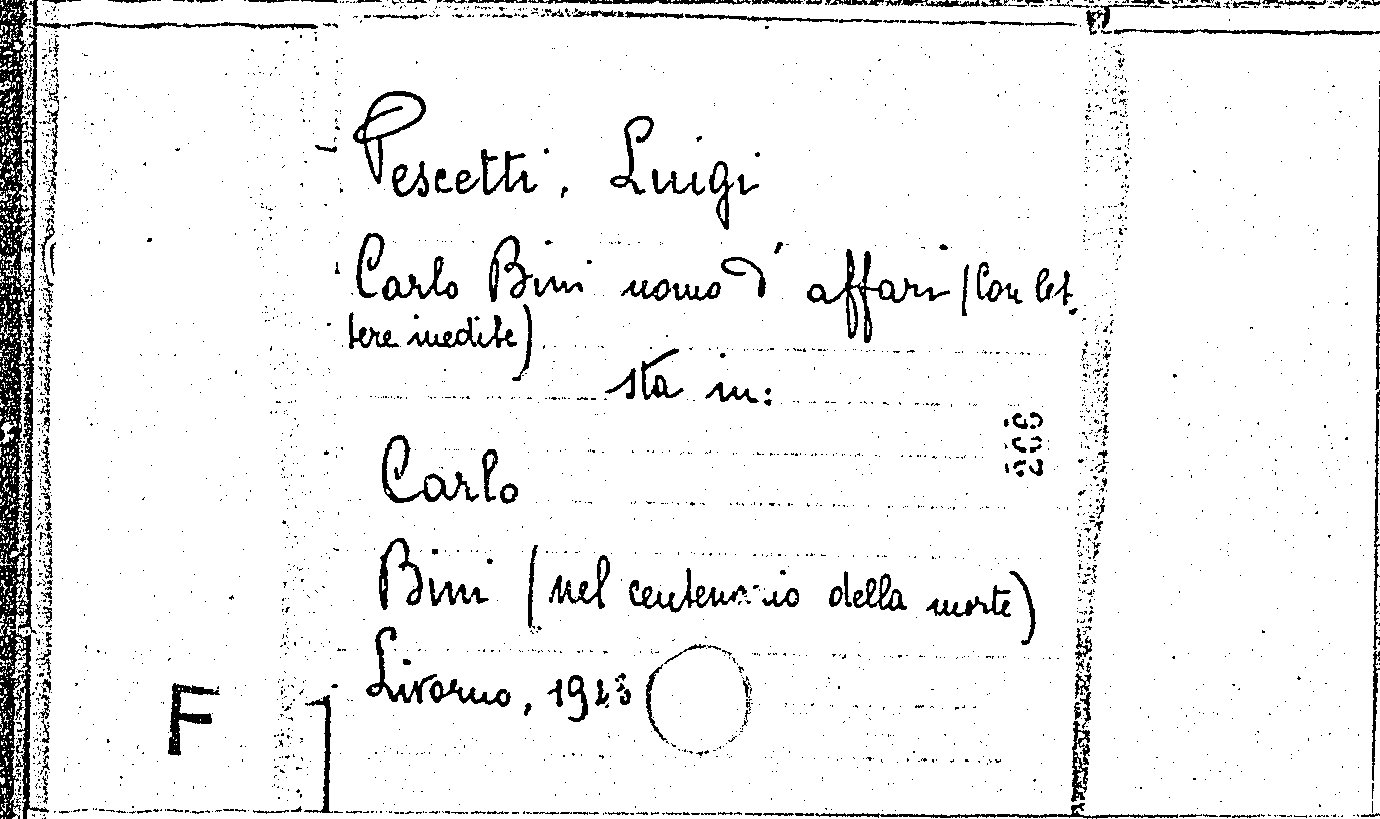 Pescetti, Luigi
Carlo Bini uomo d'affari (Con let.
tere inedite)
sta in:
Carlo
Bini (nel centenario della morte)
Livorno,
F